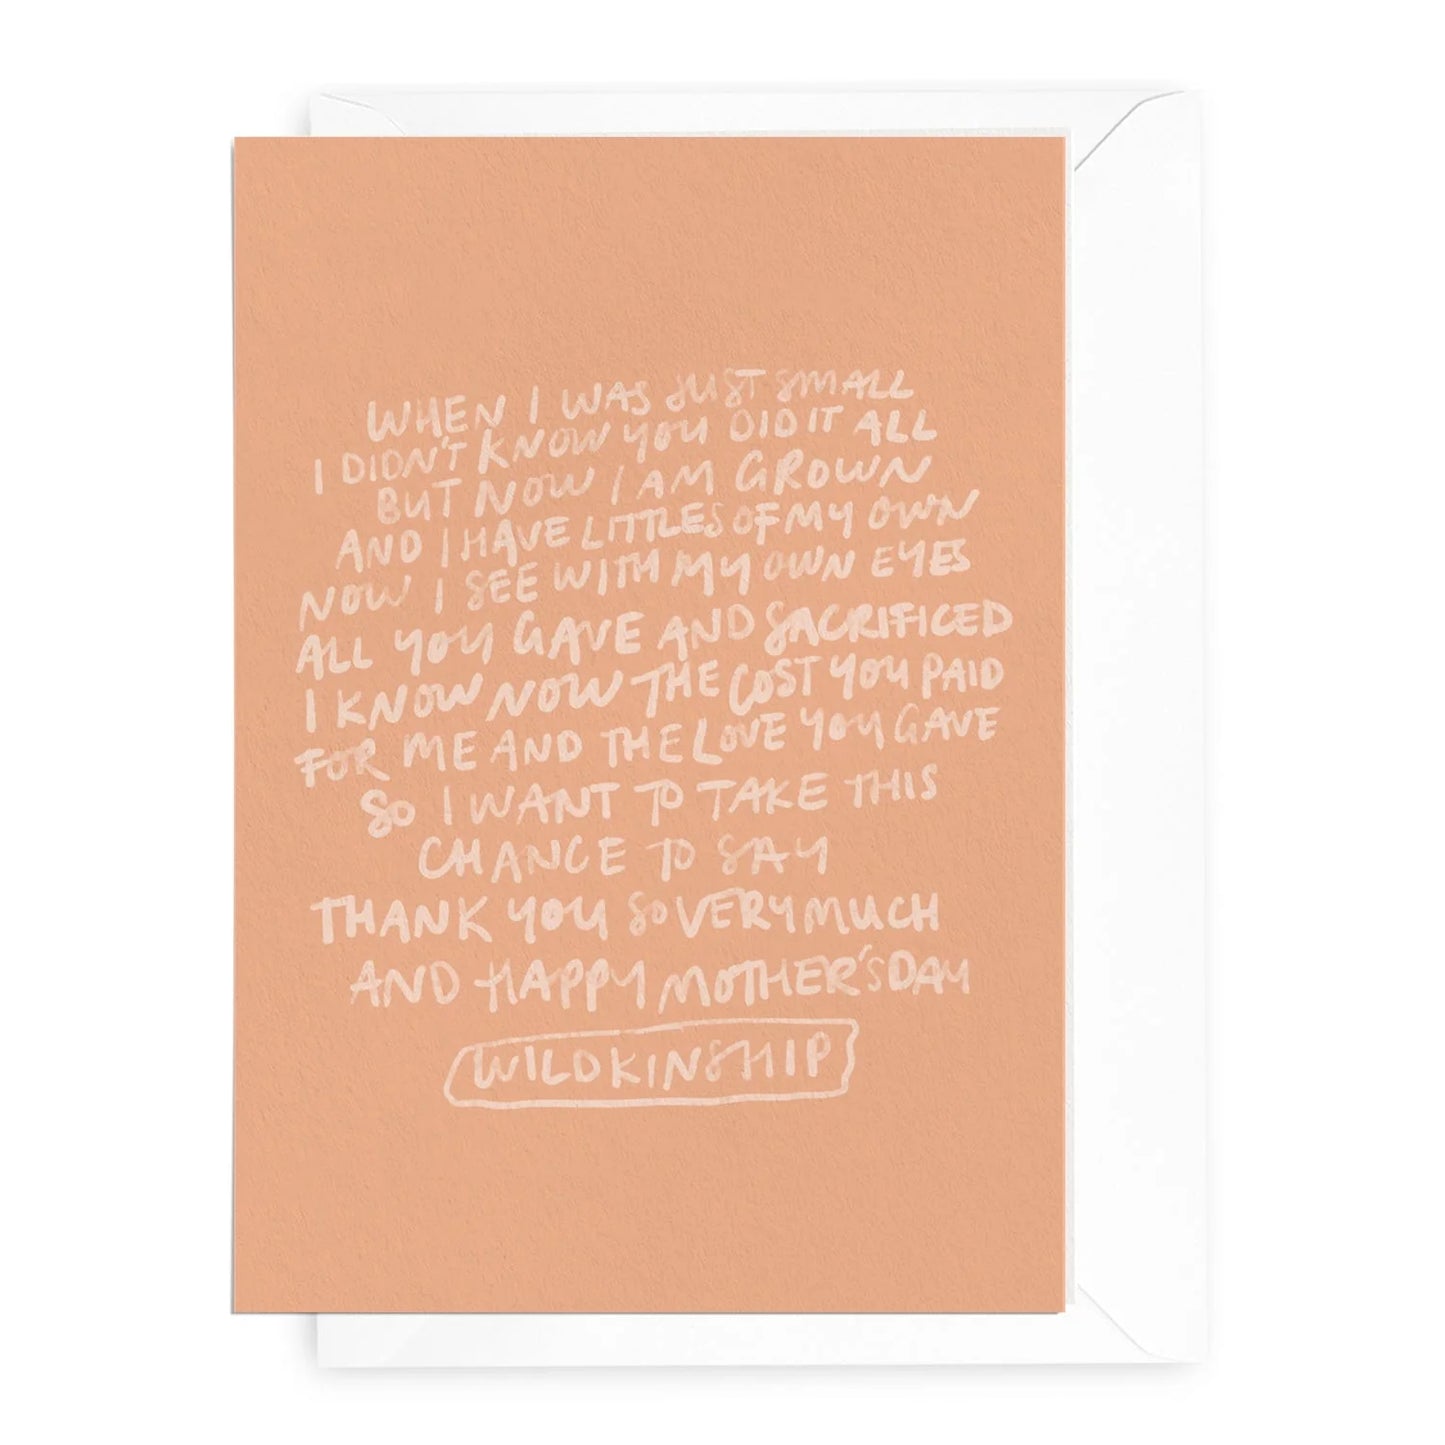 WHEN I WAS JUST SMALL
I DIDN'T KNOW YOU DID IT ALL
BUT NOW I AM GROWN
AND I HAVE LITTLES OF MY OWN
NOW I SEE WITH MY OWN EYES
ALL YOU GAVE AND SACRIFICED
I KNOW NOW THE COST YOU PAID
FOR ME AND THE LOVE YOU GAVE
SO I WANT TO TAKE THIS
CHANCE TO SAY
THANK YOU SO VERY MUCH
AND HAPPY MOTHER'S DAY
WILDKINSHIP